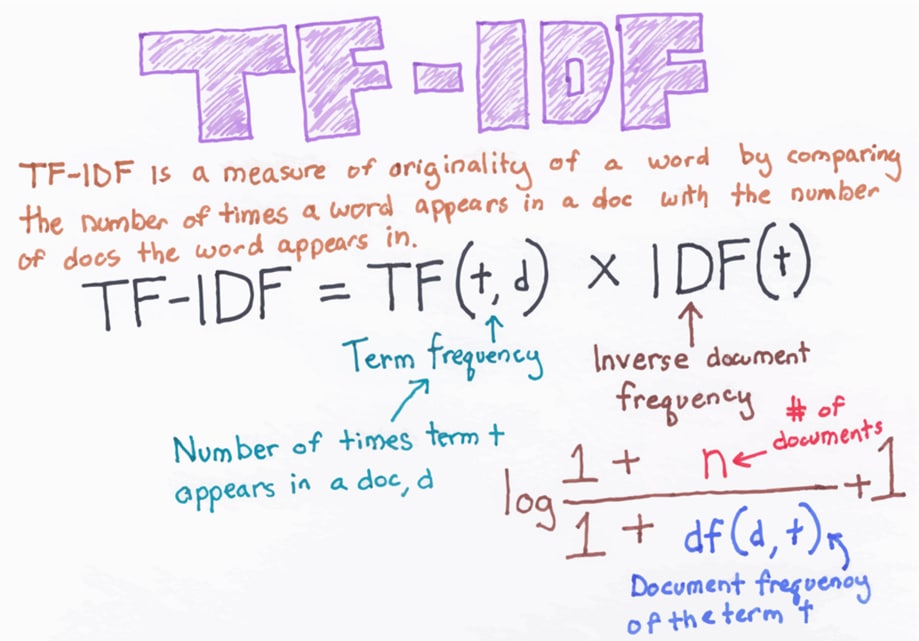 TF-IDF
TF-IDF is a measure of originality of a word by comparing
the number of times a word appears in a doc with the number
of docs the word appears in.
TF-IDF = TF(t, d) × IDF(t)
Term frequency
Inverse document
frequency
Number of times term t
appears in a doc, d
# of
documents
1 + n
log +1
1 + df(d, t)
Document frequency
of the term t